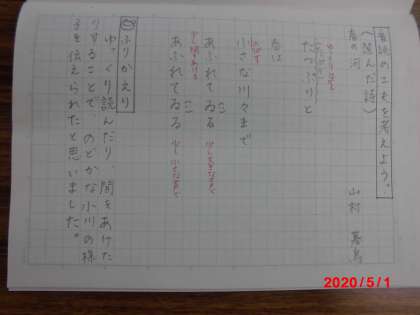 音読の工夫を考えよう。
(選んだ詩)
春の河
山村 暮鳥
たっぷりと
春は
小さな川々まで
あふれてゐる
い
少し小さな声で
あふれてゐる
い
ふりかえり
ゆっくり読んだり、間をあけた
りすることで、のどかな小川の様
子を伝えられたと思いました。
2020/5/1